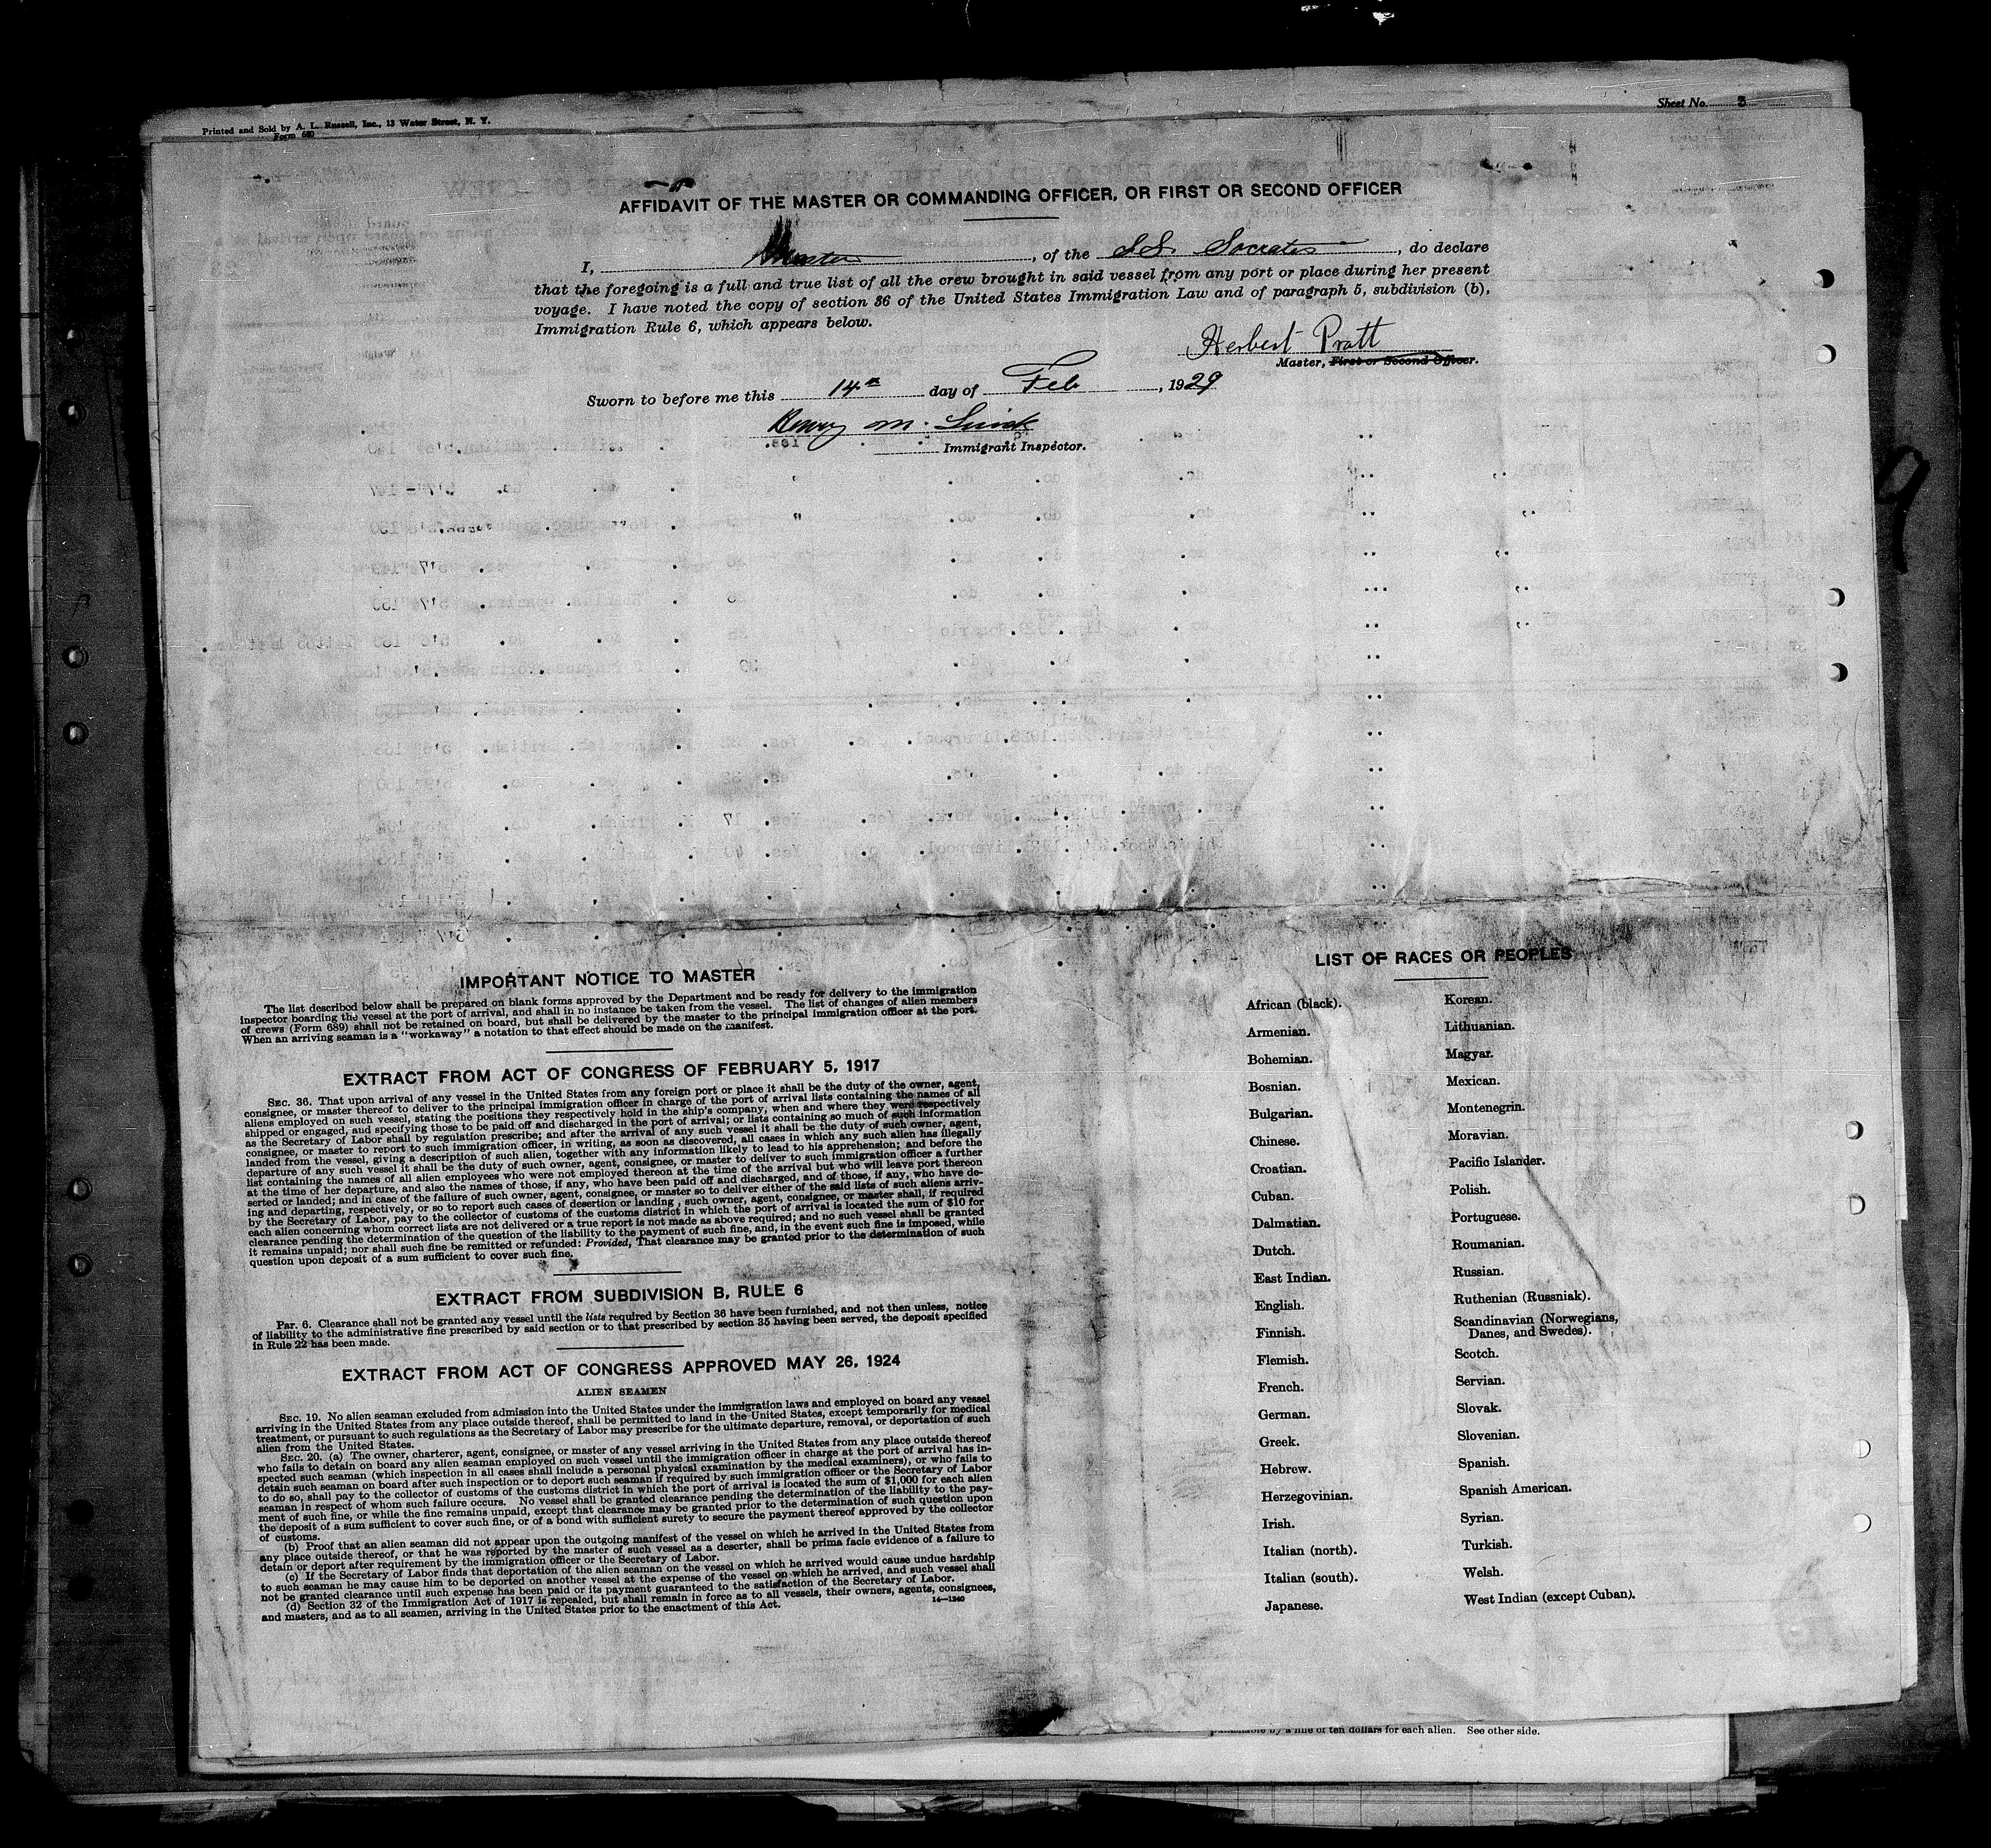 Printed and Sold by A. L. Russell, Inc., 13 Water Street, N. Y.
Form 680
Sheet No. 3
AFFIDAVIT OF THE MASTER OR COMMANDING OFFICER, OR FIRST OR SECOND OFFICER
I, Master, of the S.S. Socrates, do declare
that the foregoing is a full and true list of all the crew brought in said vessel from any port or place during her present
voyage. I have noted the copy of section 36 of the United States Immigration Law and of paragraph 5, subdivision (b),
Immigration Rule 6, which appears below.
Herbert Pratt
Master, First or Second Officer.
Sworn to before me this 14th day of Feb, 1929
Henry M.
Immigrant Inspector.
IMPORTANT NOTICE TO MASTER
The list described below shall be prepared on blank forms approved by the Department and be ready for delivery to the immigration
inspector boarding the vessel at the port of arrival, and shall in no instance be taken from the vessel. The list of changes of alien members
of crews (Form 689) shall not be retained on board, but shall be delivered by the master to the principal immigration officer at the port.
When an arriving seaman is a "workaway" a notation to that effect should be made on the manifest.
EXTRACT FROM ACT OF CONGRESS OF FEBRUARY 5, 1917
SEC. 36. That upon arrival of any vessel in the United States from any foreign port or place it shall be the duty of the owner, agent,
consignee, or master thereof to deliver to the principal immigration officer in charge of the port of arrival lists containing the names of all
aliens employed on such vessel, stating the positions they respectively hold in the ship's company, when and where they were respectively
shipped or engaged, and specifying those to be paid off and discharged in the port of arrival; or lists containing so much of such information
as the Secretary of Labor shall by regulation prescribe; and after the arrival of any such vessel it shall be the duty of such owner, agent,
consignee, or master to report to such immigration officer, in writing, as soon as discovered, all cases in which any such alien has illegally
landed from the vessel, giving a description of such alien, together with any information likely to lead to his apprehension; and before the
departure of any such vessel it shall be the duty of such owner, agent, consignee, or master to deliver to such immigration officer a further
list containing the names of all alien employees who were not employed thereon at the time of the arrival but who will leave port thereon
at the time of her departure, and also the names of those, if any, who have been paid off and discharged, and of those, if any, who have de-
serted or landed; and in case of the failure of such owner, agent, consignee, or master so to deliver either of the said lists of such aliens arriv-
ing and departing, respectively, or so to report such cases of desertion or landing, such owner, agent, consignee, or master shall, if required
by the Secretary of Labor, pay to the collector of customs of the customs district in which the port of arrival is located the sum of $10 for
each alien concerning whom correct lists are not delivered or a true report is not made as above required; and no such vessel shall be granted
clearance pending the determination of the question of the liability to the payment of such fine, and, in the event such fine is imposed, while
it remains unpaid; nor shall such fine be remitted or refunded: Provided, That clearance may be granted prior to the determination of such
question upon deposit of a sum sufficient to cover such fine.
EXTRACT FROM SUBDIVISION B, RULE 6
Par. 6. Clearance shall not be granted any vessel until the lists required by Section 36 have been furnished, and not then unless, notice
of liability to the administrative fine prescribed by said section or to that prescribed by section 35 having been served, the deposit specified
in Rule 22 has been made.
EXTRACT FROM ACT OF CONGRESS APPROVED MAY 26, 1924
ALIEN SEAMEN
SEC. 19. No alien seaman excluded from admission into the United States under the immigration laws and employed on board any vessel
arriving in the United States from any place outside thereof, shall be permitted to land in the United States, except temporarily for medical
treatment, or pursuant to such regulations as the Secretary of Labor may prescribe for the ultimate departure, removal, or deportation of such
alien from the United States.
SEC. 20. (a) The owner, charterer, agent, consignee, or master of any vessel arriving in the United States from any place outside thereof
who fails to detain on board any alien seaman employed on such vessel until the immigration officer in charge at the port of arrival has in-
spected such seaman (which inspection in all cases shall include a personal physical examination by the medical examiners), or who fails to
detain such seaman on board after such inspection or to deport such seaman if required by such immigration officer or the Secretary of Labor
to do so, shall pay to the collector of customs of the customs district in which the port of arrival is located the sum of $1,000 for each alien
seaman in respect of whom such failure occurs. No vessel shall be granted clearance pending the determination of the liability to the pay-
ment of such fine, or while the fine remains unpaid, except that clearance may be granted prior to the determination of such question upon
the deposit of a sum sufficient to cover such fine, or of a bond with sufficient surety to secure the payment thereof approved by the collector
of customs.
(b) Proof that an alien seaman did not appear upon the outgoing manifest of the vessel on which he arrived in the United States from
any place outside thereof, or that he was reported by the master of such vessel as a deserter, shall be prima facie evidence of a failure to
detain or deport after requirement by the immigration officer or the Secretary of Labor.
(c) If the Secretary of Labor finds that deportation of the alien seaman on the vessel on which he arrived would cause undue hardship
to such seaman he may cause him to be deported on another vessel at the expense of the vessel on which he arrived, and such vessel shall
not be granted clearance until such expense has been paid or its payment guaranteed to the satisfaction of the Secretary of Labor.
(d) Section 32 of the Immigration Act of 1917 is repealed, but shall remain in force as to all vessels, their owners, agents, consignees,
and masters, and as to all seamen, arriving in the United States prior to the enactment of this Act.
14—1240
LIST OF RACES OR PEOPLES
African (black).
Armenian.
Bohemian.
Bosnian.
Bulgarian.
Chinese.
Croatian.
Cuban.
Dalmatian.
Dutch.
East Indian.
English.
Finnish.
Flemish.
French.
German.
Greek.
Hebrew.
Herzegovinian.
Irish.
Italian (north).
Italian (south).
Japanese.
Korean.
Lithuanian.
Magyar.
Mexican.
Montenegrin.
Moravian.
Pacific Islander.
Polish.
Portuguese.
Roumanian.
Russian.
Ruthenian (Russniak).
Scandinavian (Norwegians,
Danes, and Swedes).
Scotch.
Servian.
Slovak.
Slovenian.
Spanish.
Spanish American.
Syrian.
Turkish.
Welsh.
West Indian (except Cuban).
by a fine of ten dollars for each alien. See other side.